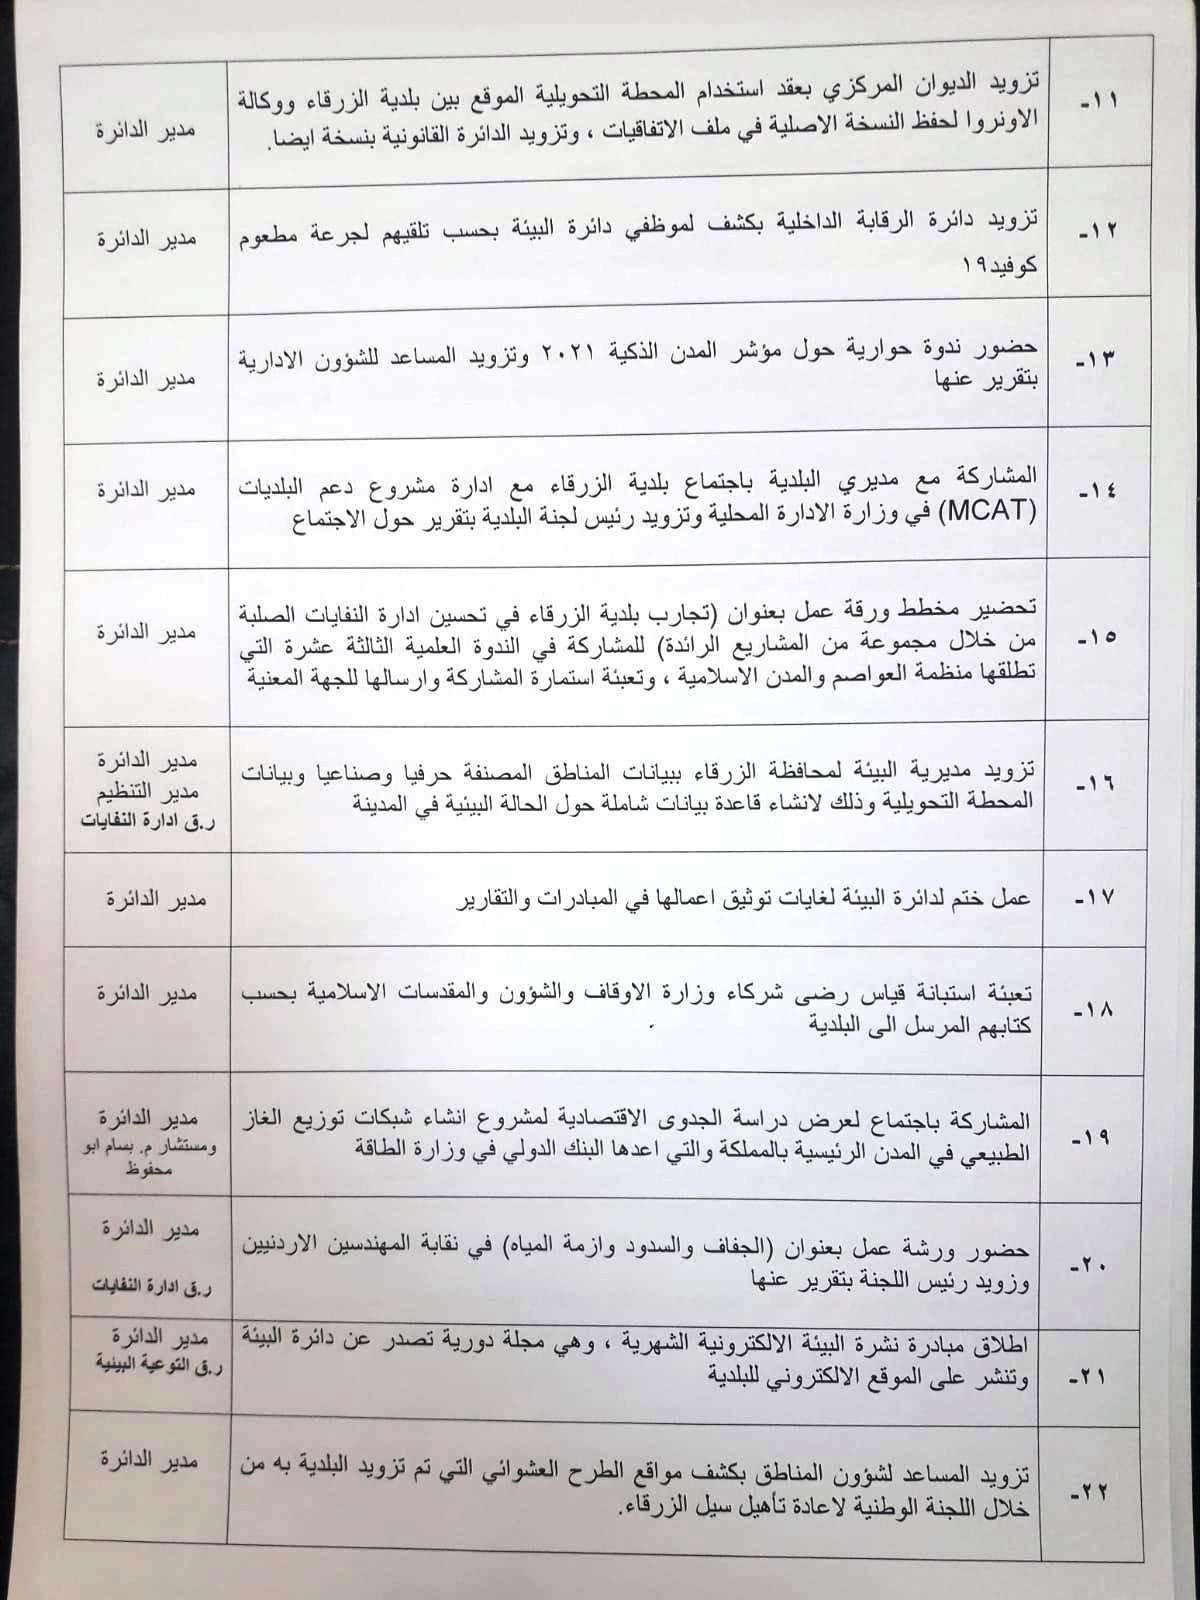 ١١-
تزويد الديوان المركزي بعقد استخدام المحطة التحويلية الموقع بين بلدية الزرقاء ووكالة
الاونروا لحفظ النسخة الاصلية في ملف الاتفاقيات ، وتزويد الدائرة القانونية بنسخة ايضا.
مدير الدائرة
١٢-
تزويد دائرة الرقابة الداخلية بكشف لموظفي دائرة البيئة بحسب تلقيهم لجرعة مطعوم
كوفيد١٩
مدير الدائرة
١٣-
حضور ندوة حوارية حول مؤشر المدن الذكية ٢٠٢١ وتزويد المساعد للشؤون الادارية
بتقرير عنها
مدير الدائرة
١٤-
المشاركة مع مديري البلدية باجتماع بلدية الزرقاء مع ادارة مشروع دعم البلديات
(MCAT) في وزارة الادارة المحلية وتزويد رئيس لجنة البلدية بتقرير حول الاجتماع
مدير الدائرة
١٥-
تحضير مخطط ورقة عمل بعنوان (تجارب بلدية الزرقاء في تحسين ادارة النفايات الصلبة
من خلال مجموعة من المشاريع الرائدة) للمشاركة في الندوة العلمية الثالثة عشرة التي
تطلقها منظمة العواصم والمدن الاسلامية ، وتعبئة استمارة المشاركة وارسالها للجهة المعنية
مدير الدائرة
١٦-
تزويد مديرية البيئة لمحافظة الزرقاء ببيانات المناطق المصنفة حرفيا وصناعيا وبيانات
المحطة التحويلية وذلك لانشاء قاعدة بيانات شاملة حول الحالة البيئية في المدينة
مدير الدائرة
مدير التنظيم
ر.ق ادارة النفايات
١٧-
عمل ختم لدائرة البيئة لغايات توثيق اعمالها في المبادرات والتقارير
مدير الدائرة
١٨-
تعبئة استبانة قياس رضى شركاء وزارة الاوقاف والشؤون والمقدسات الاسلامية بحسب
كتابهم المرسل الى البلدية
مدير الدائرة
١٩-
المشاركة باجتماع لعرض دراسة الجدوى الاقتصادية لمشروع انشاء شبكات توزيع الغاز
الطبيعي في المدن الرئيسية بالمملكة والتي اعدها البنك الدولي في وزارة الطاقة
مدير الدائرة
ومستشار م. بسام ابو
محفوظ
٢٠-
حضور ورشة عمل بعنوان (الجفاف والسدود وازمة المياه) في نقابة المهندسين الاردنيين
وزويد رئيس اللجنة بتقرير عنها
مدير الدائرة
ر.ق ادارة النفايات
٢١-
اطلاق مبادرة نشرة البيئة الالكترونية الشهرية ، وهي مجلة دورية تصدر عن دائرة البيئة
وتنشر على الموقع الالكتروني للبلدية
مدير الدائرة
ر.ق التوعية البيئية
٢٢-
تزويد المساعد لشؤون المناطق بكشف مواقع الطرح العشوائي التي تم تزويد البلدية به من
خلال اللجنة الوطنية لاعادة تأهيل سيل الزرقاء.
مدير الدائرة